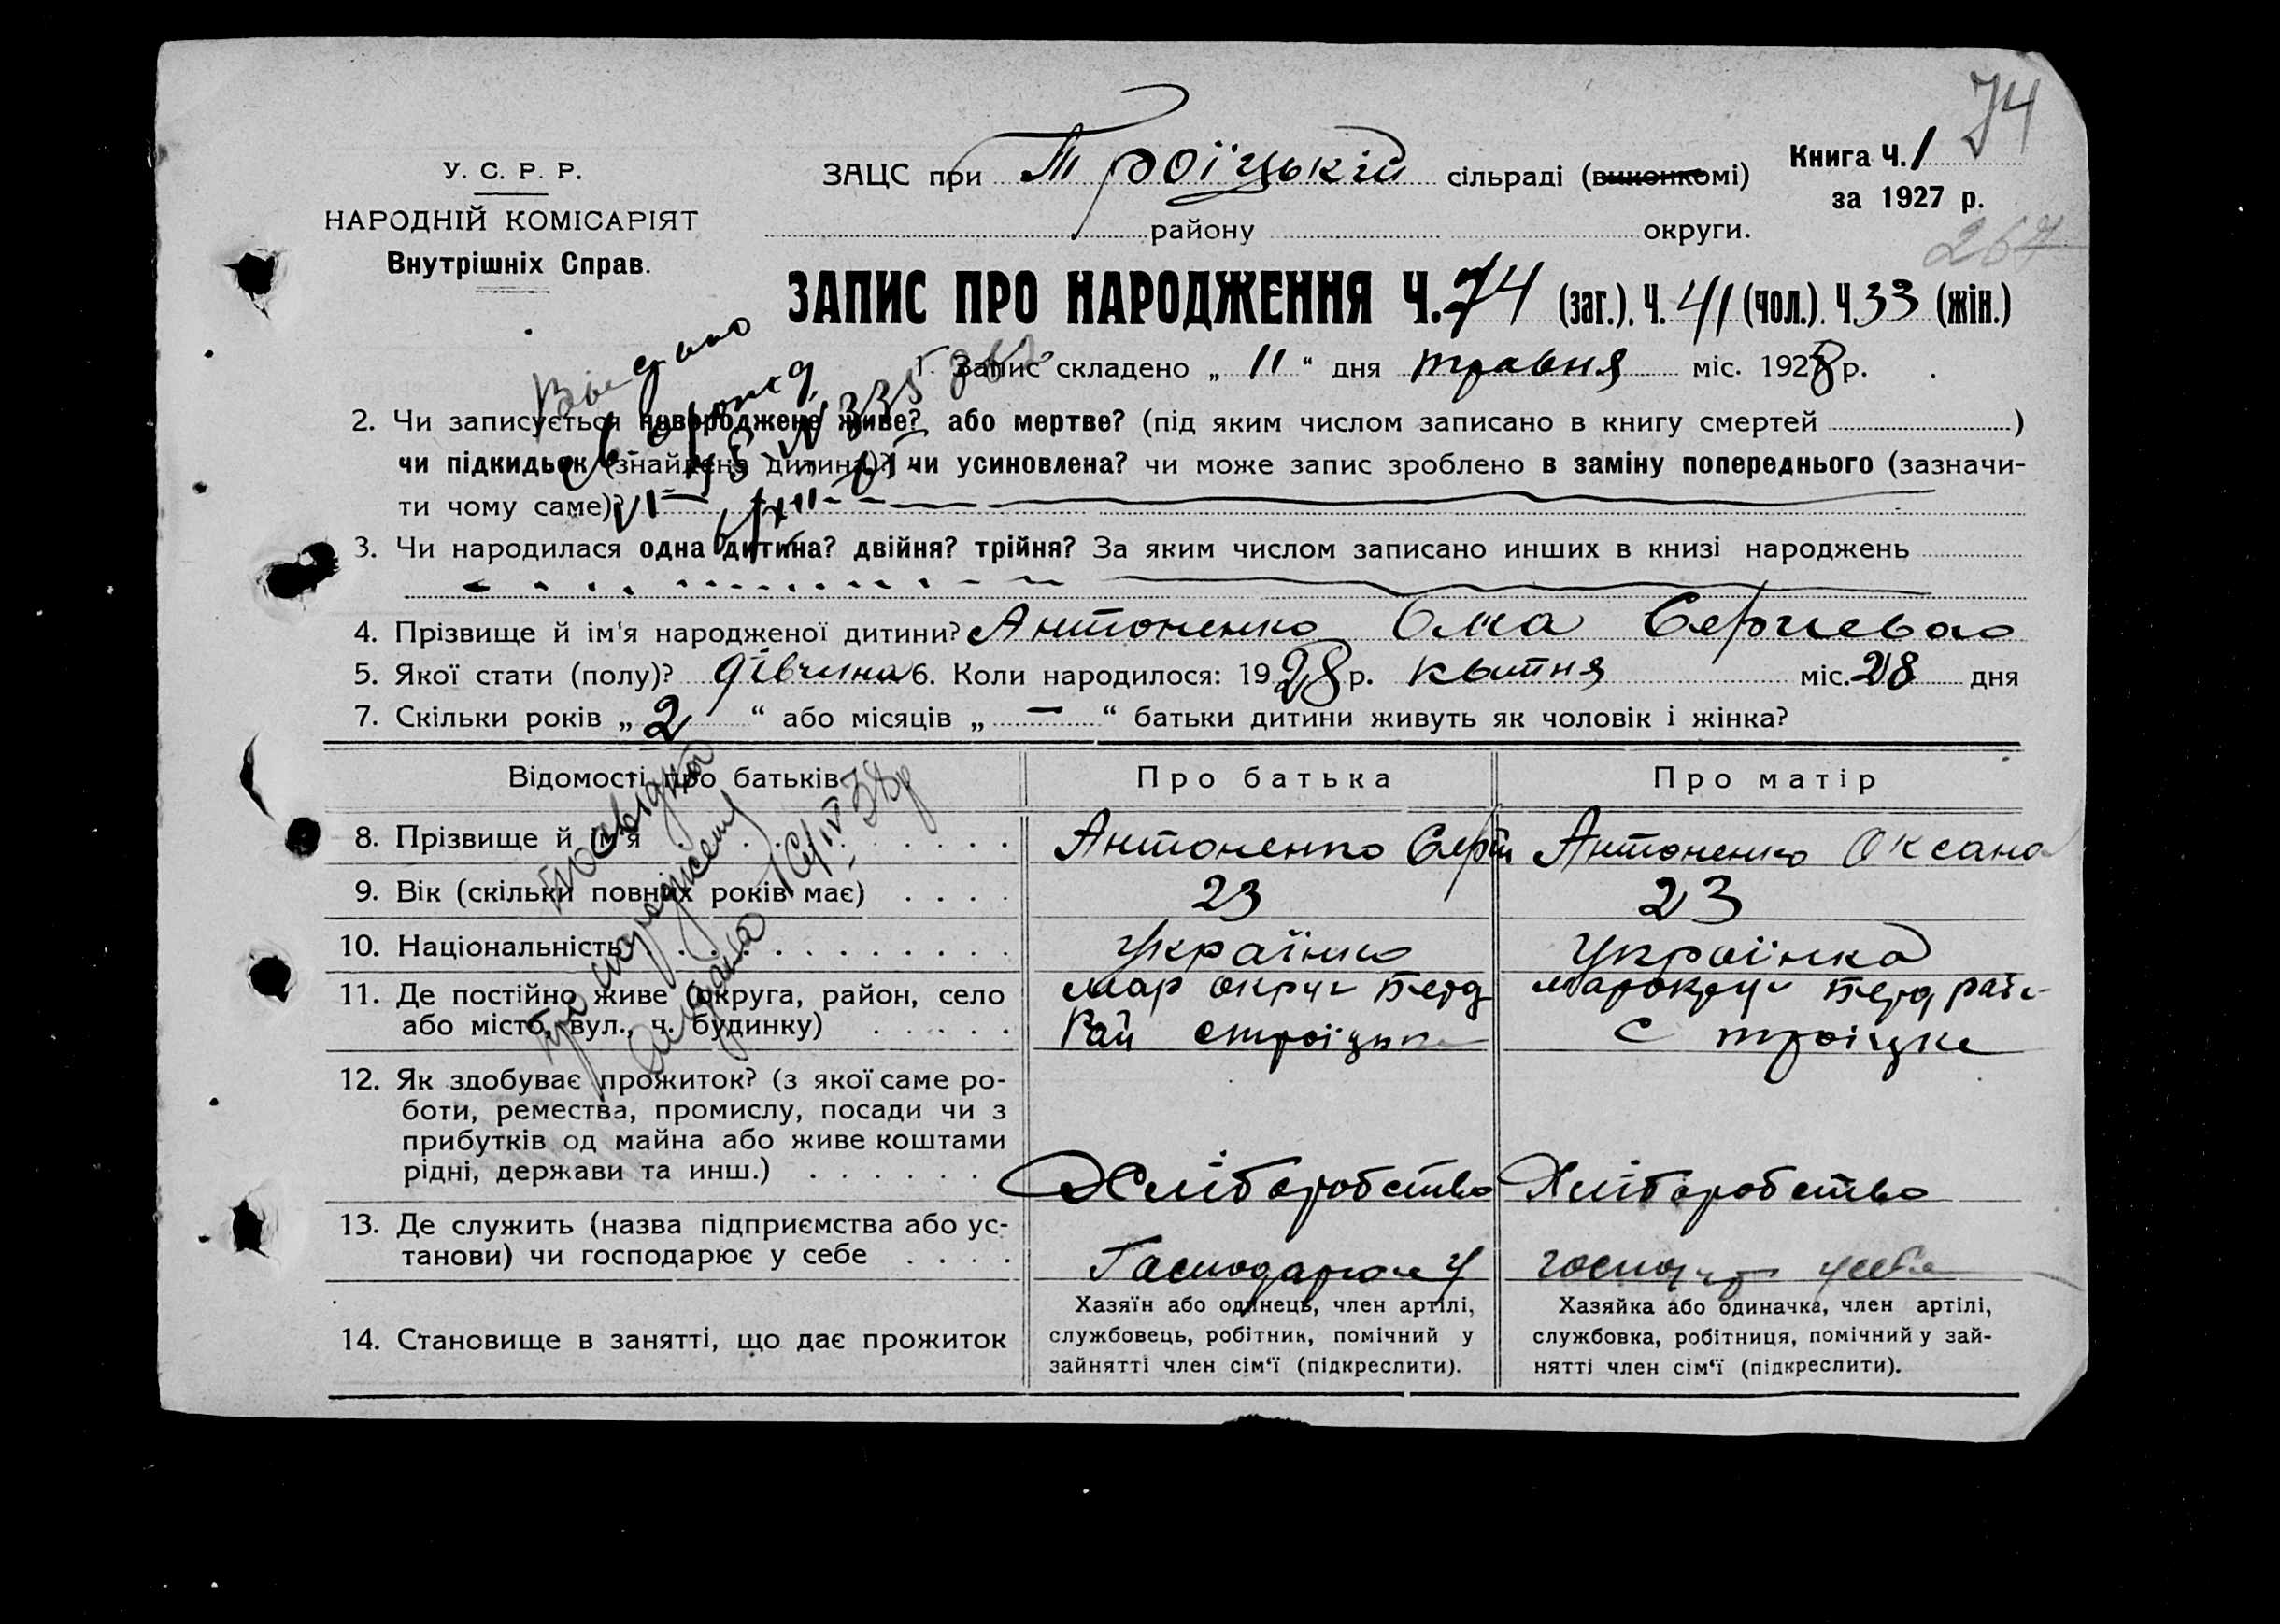 74
У. С. Р. Р.
НАРОДНІЙ КОМІСАРІЯТ
Внутрішніх Справ.
ЗАЦС при Троїцькій сільраді (виконкомі)
Книга Ч. 1
за 1927 р.
району округи.
267
ЗАПИС ПРО НАРОДЖЕННЯ Ч. 74 (заг.). Ч. 41 (чол.). Ч 33 (жін.)
1. Запис складено „ 11 “ дня травня міс. 1928 р.
2. Чи записується новороджене живе? або мертве? (під яким числом записано в книгу смертей )
чи підкидьок (знайдена дитина)? чи усиновлена? чи може запис зроблено в заміну попереднього (зазначи-
ти чому саме)?
3. Чи народилася одна дитина? двійня? трійня? За яким числом записано инших в книзі народжень
4. Прізвище й ім'я народженої дитини? Антоненко Сергиевао
5. Якої стати (полу)? дівчина 6. Коли народилося: 1928 р. квитня міс. 28 дня
7. Скільки років „ 2 “ або місяців „ — “ батьки дитини живуть як чоловік і жінка?
Відомості про батьків
Про батька
Про матір
8. Прізвище й ім'я . . . . . . . .
Антоненко Сергій
Антоненко Оксана
9. Вік (скільки повних років має) . . . .
23
23
10. Національність . . . . . . . . . .
Українко
Українка
11. Де постійно живе (округа, район, село
або місто, вул., ч. будинку) . . . . .
Мар округ Берд
Рай с троїцьке
Марокруг Берд рай
С троіцке
12. Як здобуває прожиток? (з якої саме ро-
боти, ремества, промислу, посади чи з
прибутків од майна або живе коштами
рідні, держави та инш.) . . . . . .
Хліборобство
Хліборобство
13. Де служить (назва підприємства або ус-
танови) чи господарює у себе . . . .
Господарює у
14. Становище в занятті, що дає прожиток
Хазяїн або одинець, член артілі,
службовець, робітник, помічний у
зайнятті член сім‘ї (підкреслити).
Хазяйка або одиначка, член артілі,
службовка, робітниця, помічний у зай-
нятті член сім‘ї (підкреслити).